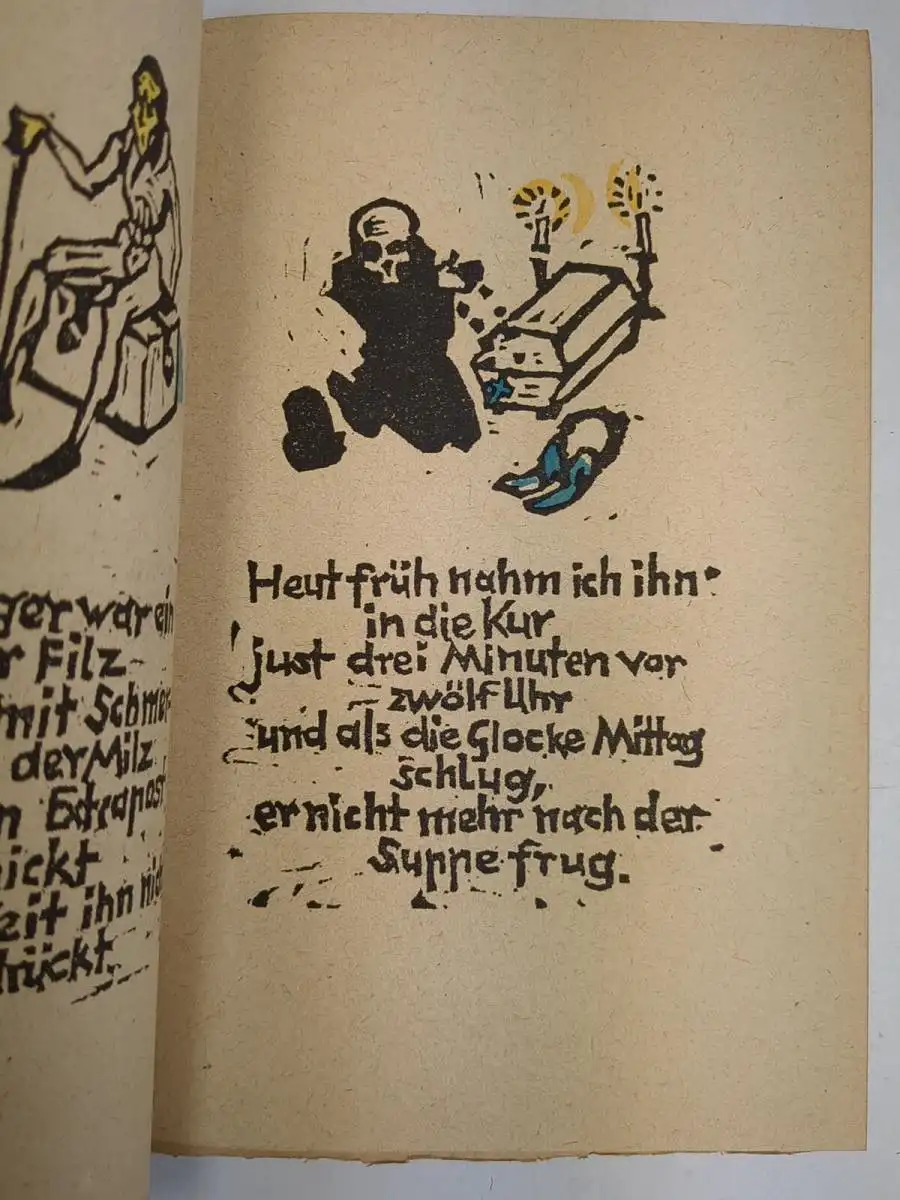 ger war ein
r Filz
mit Schmer-
der Milz
n Extrapost
ickt
eit ihn nich
rückt.
Heut früh nahm ich ihn
in die Kur
just drei Minuten vor
zwölf Uhr
und als die Glocke Mittag
schlug,
er nicht mehr nach der
Suppe frug.